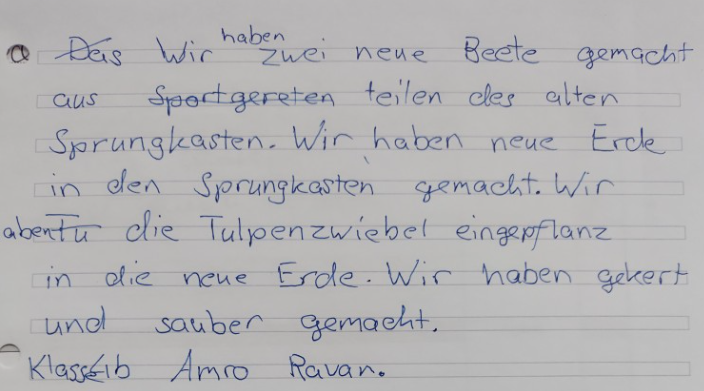 Das Wir haben zwei neue Beete gemacht
aus Sportgereten teilen des alten
Sprungkasten. Wir haben neue Erde
in den Sprungkasten gemacht. Wir
aben die Tulpenzwiebel eingepflanz
in die neue Erde. Wir haben gekert
und sauber gemacht.
Klasse 1b Amro Ravan.